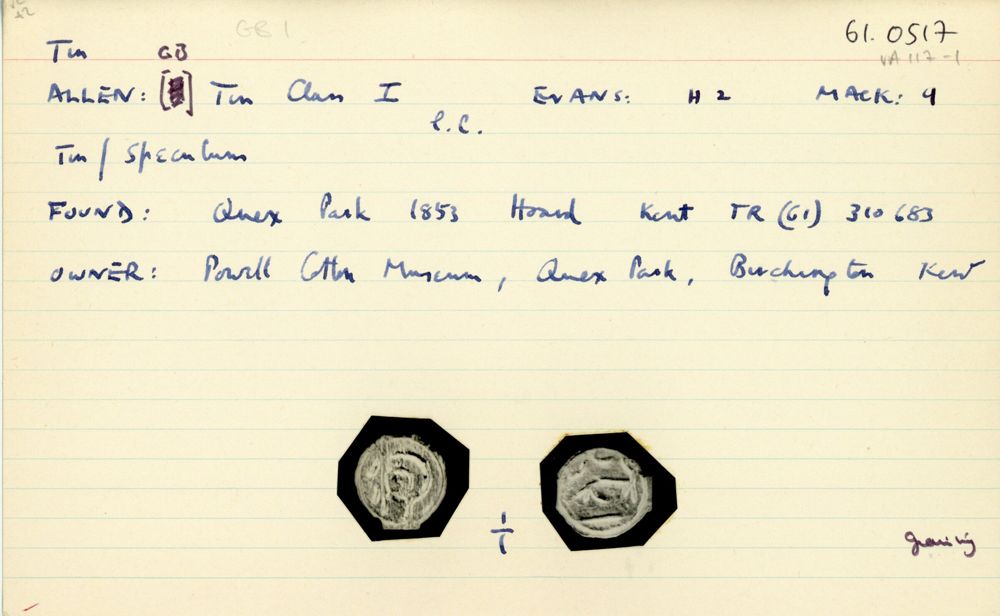 GB1
61.0517
Tin GB
VA 117-1
ALLEN: [ ] Tin Class I EVANS: H 2 MACK: 9
l.c.
Tin / Speculum
FOUND: Quex Park 1853 Hoard Kent TR (61) 310 683
OWNER: Powell Cotton Museum, Quex Park, Birchington Kent
1/1